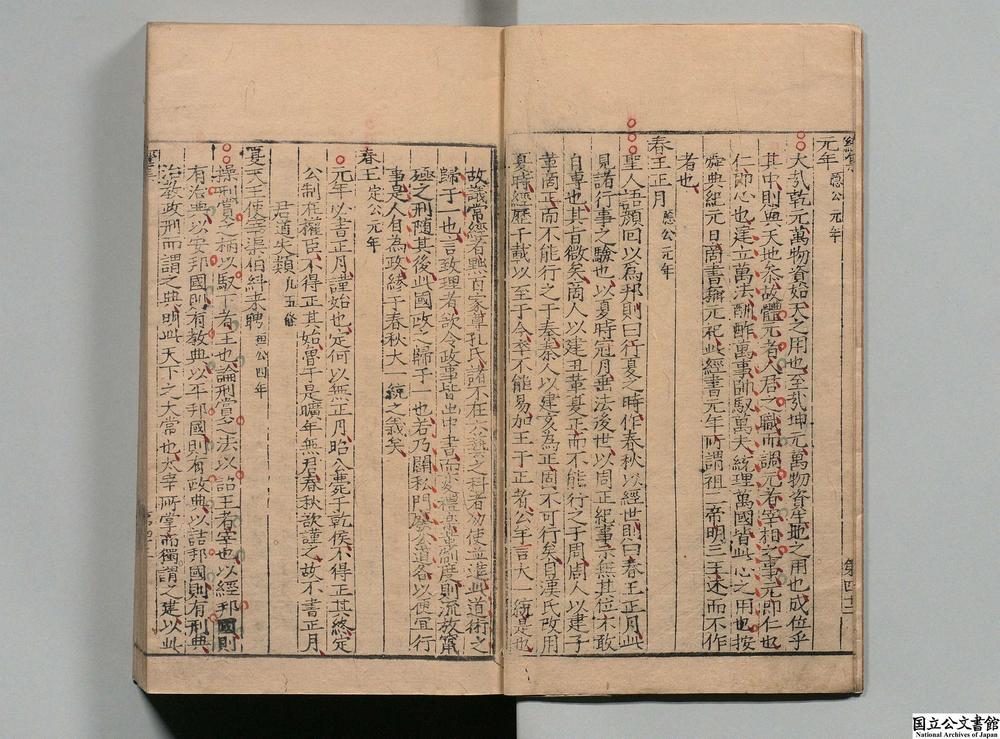 元年 隱公元年
大哉乾元萬物資始天之用也至哉坤元萬物資生地之用也成位乎
其中則與天地參故體元者人君之職而調元者宰相之事元即仁也
仁即心也建立萬法酬酢萬事帥馭萬夫統理萬國皆此心之用也按
舜典紀元日商書稱元祀此經書元年所謂祖二帝明三王述而不作
者也
春王正月 隱公元年
聖人語顏回以為邦則曰行夏之時作春秋以經世則曰春王正月此
見諸行事之驗也以夏時冠月垂法後世以周正紀事示無其位不敢
自專也其旨微矣商人以建丑革夏正而不能行之于周周人以建子
革商正而不能行之于秦秦人以建亥為正固不可行矣自漢氏改用
夏時經歷千載以至于今卒不能易加王于正者公羊言大一統是也
第四十
故議常經者黜百家尊孔氏諸不在六藝之科者勿使並進此道術之
歸于一也言致理者欲令政事皆出中書而變禮樂革制度則流放竄
殛之刑隨其後此國政之歸于一也若乃闢私門廢公道各以便宜行
事是人自為政繆于春秋大一統之義矣
春王 定公元年
元年必書正月謹始也定何以無正月昭公薨于乾侯不得正其終定
公制在權臣不得正其始魯于是曠年無君春秋欲謹之故不書正月
君道失類 九五條
夏天王使宰渠伯糾來聘 桓公四年
操刑賞之柄以馭下者王也論刑賞之法以詔王者宰也以經邦國則
有治典以安邦國則有教典以平邦國則有政典以詰邦國則有刑典
治教政刑而謂之典明此天下之大常也太宰所掌而獨謂之建以此
国立公文書館
National Archives of Japan